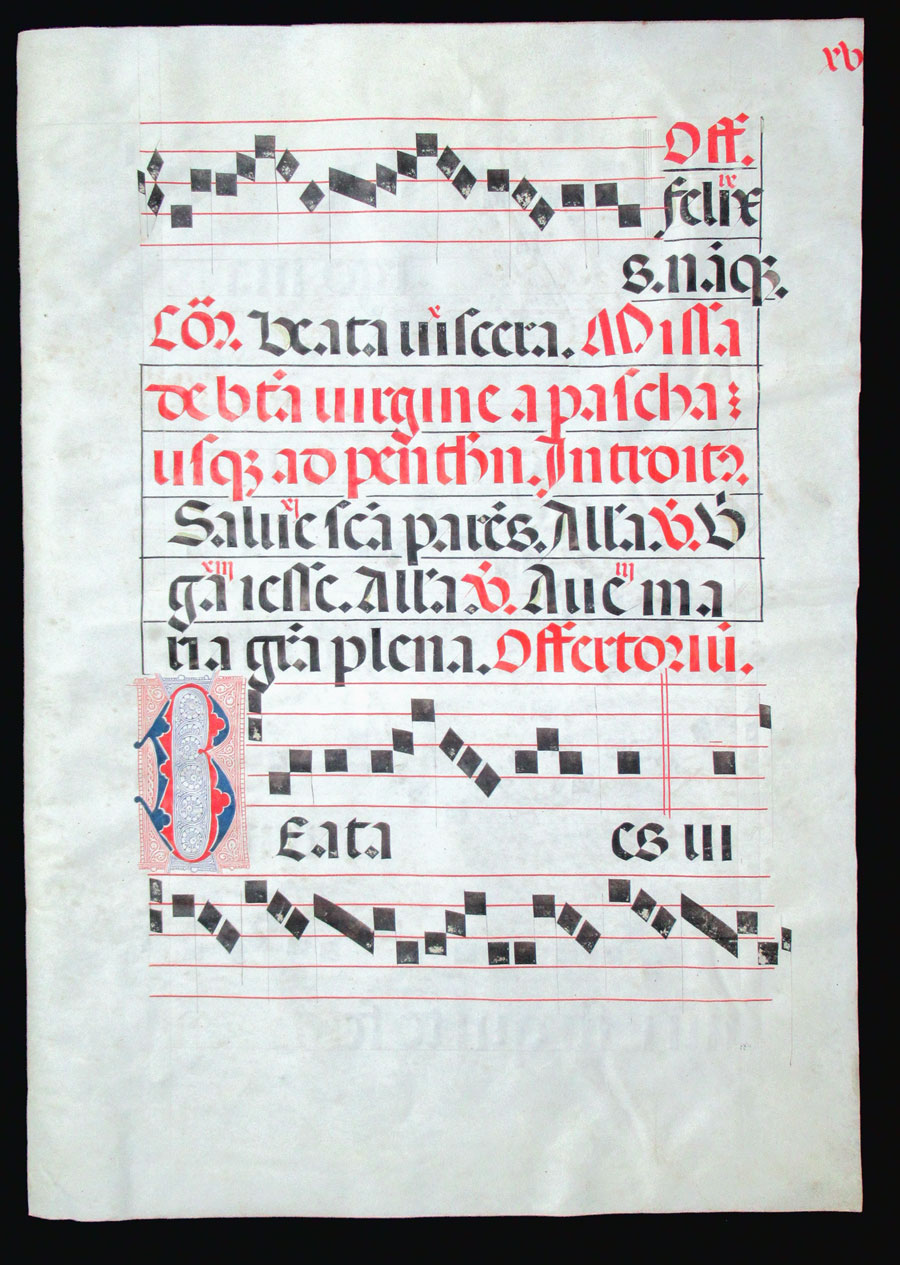 xv
Off.
ix
felix
s. nāqꝫ.
x
Cōꝫ. Beata uiscera. Missa
de btā uirgine a pascha
usqꝫ ad penthn. Introitꝰ
xi
Salue scā parēs. All'a. V̄. V
xiii iii
gā iesse. All'a. V̄. Aue ma
ria grā plena. Offertoriū.
BEata es ui